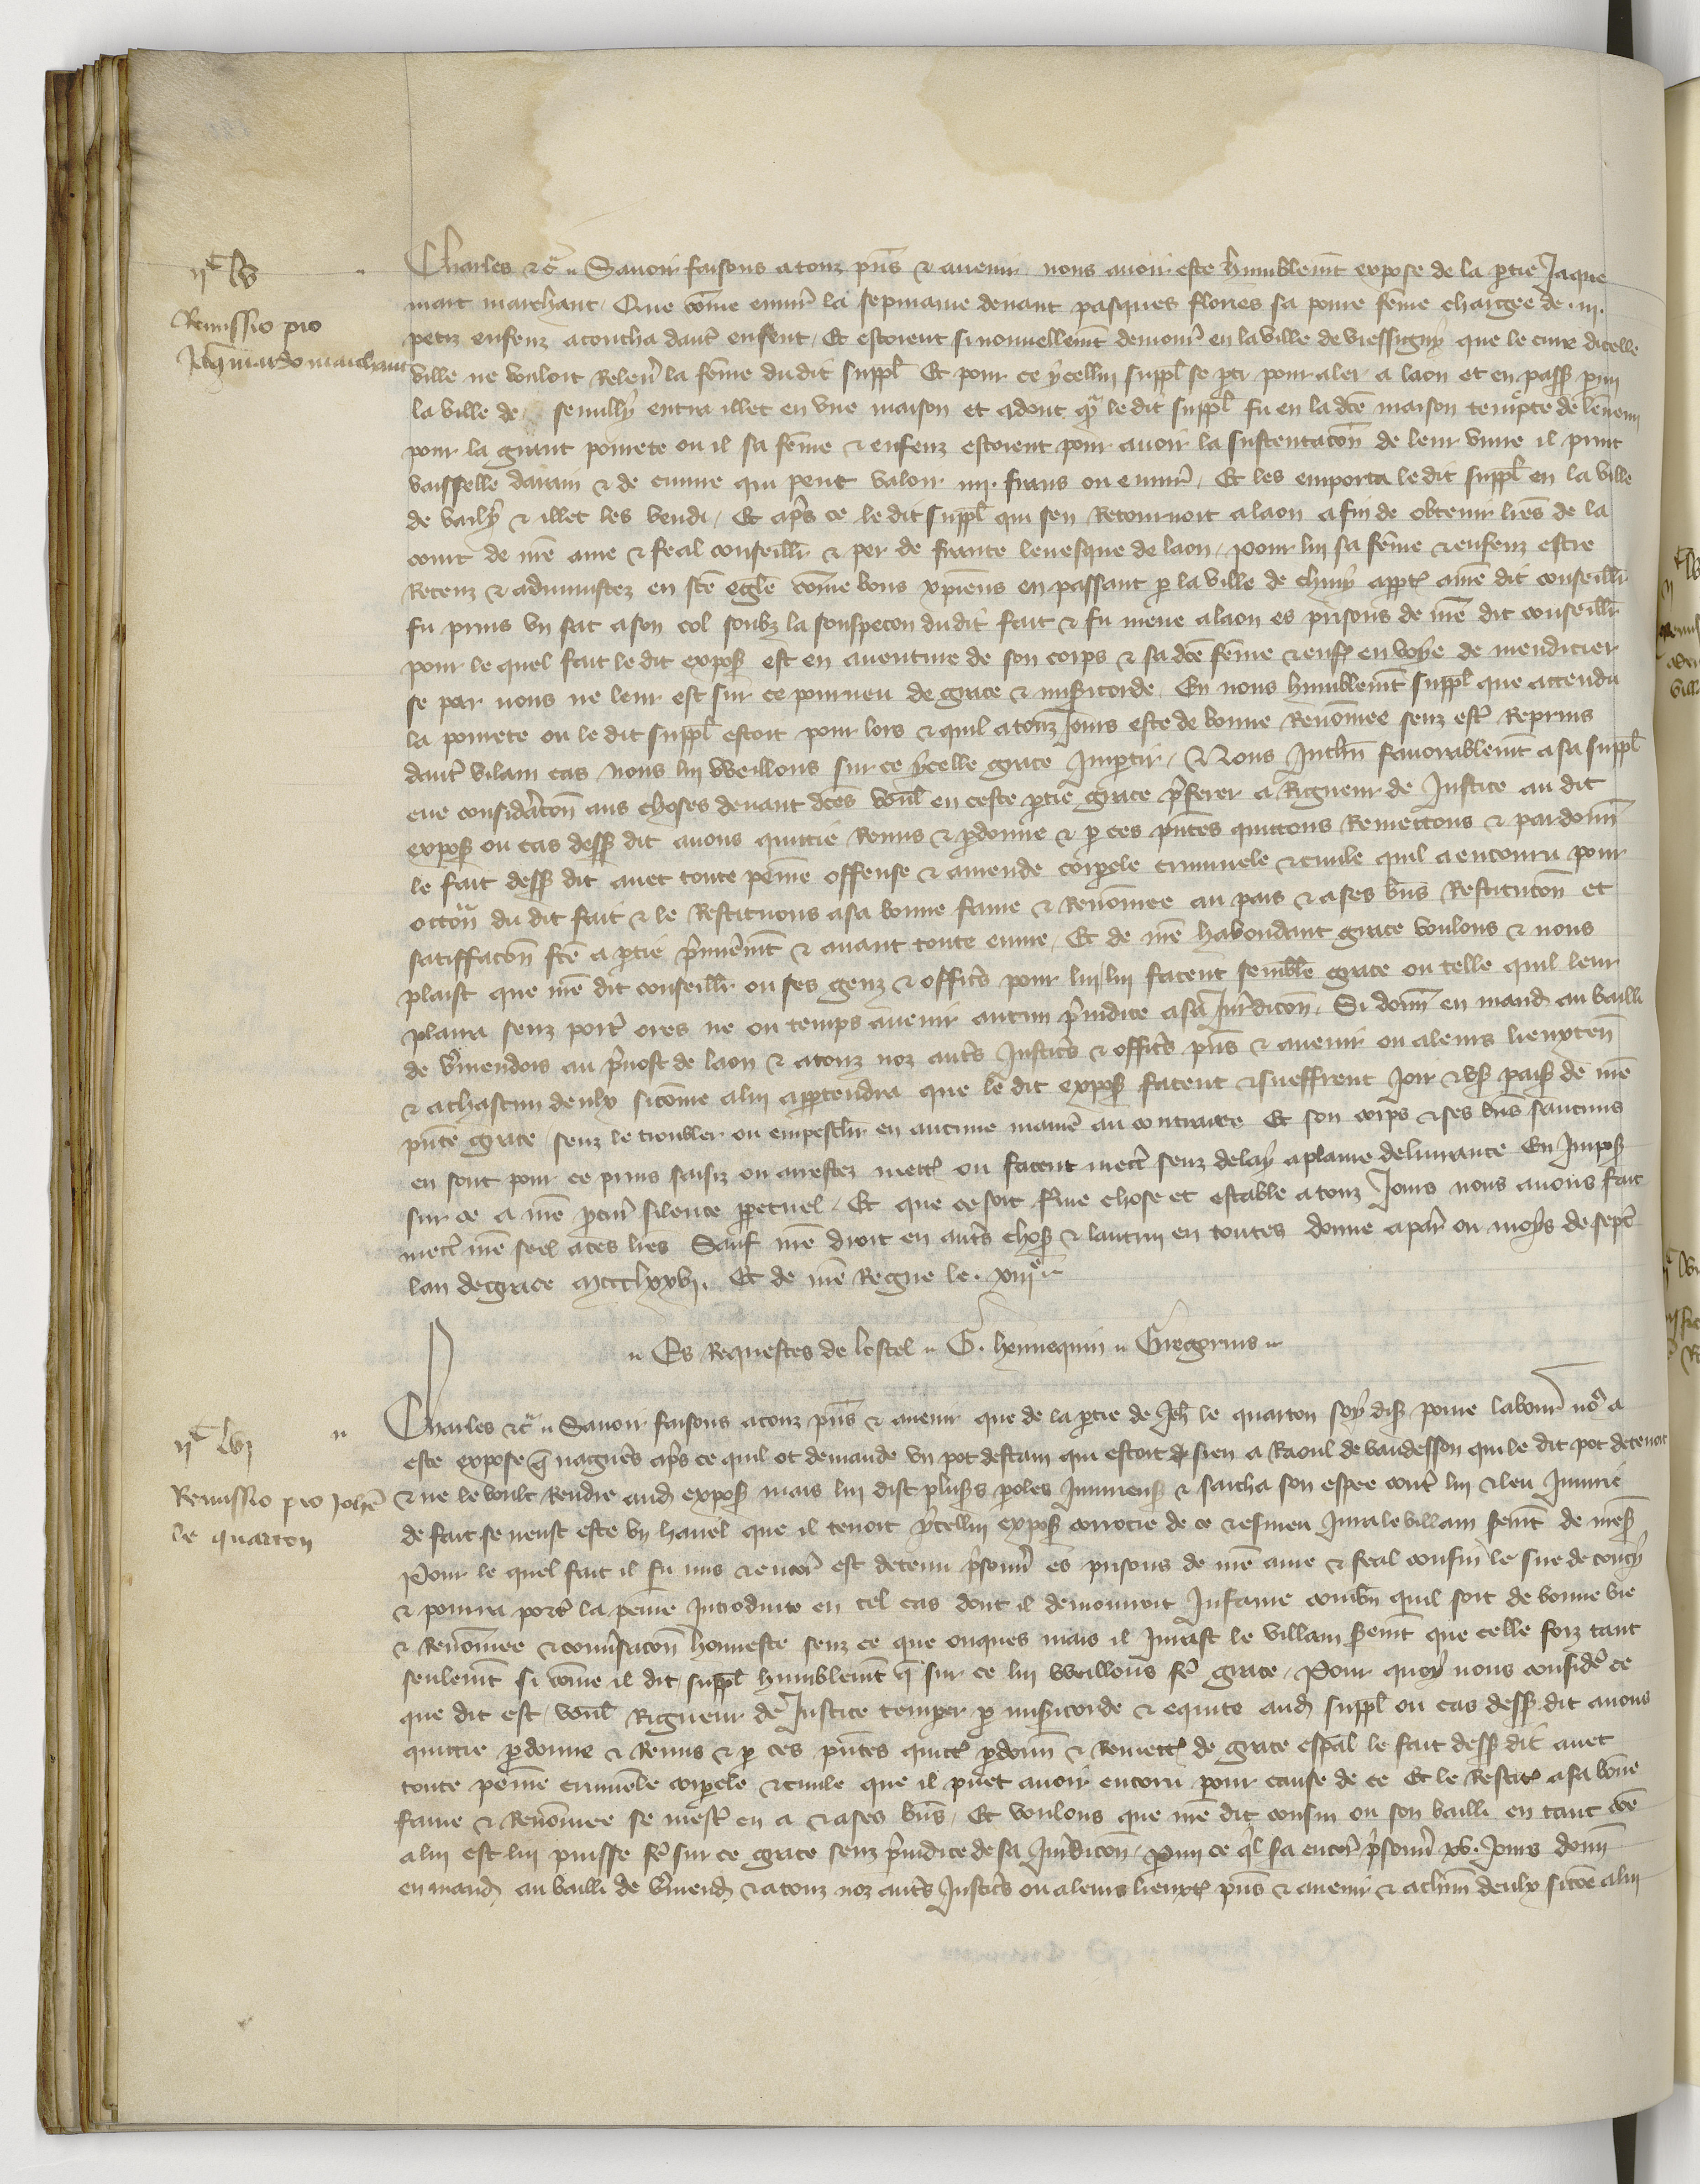 IIc LV
Remissio pro
Jaquemardo marchant
Charles etc. Savoir faisons a touz pns et avenir nous avoir este humblemt expose de la ptie Jaque
mart marchant Que cõme enuir la sepmaine devant pasques flories sa povre fẽme chargee de .III.
petiz enfenz acoucha dautr enfent Et estoient si nouvellemt demour en la ville de vressigny que le cure dicelle
ville ne vouloit relever la fẽme dudit suppl Et pour ce ycellui suppl se pti pour aler a laon et en pass pmi
la ville de semilly entra illec en une maison et adont qr le dit suppl fu en la dce maison tempte de lennemi
pour la grant povrete ou il sa fẽme et enfenz estoient pour avoir la sustentacõn de leur vivre il print
vaisselle dairain et de cuivre qui peut valoir IIII. frans ou enuir Et les emporta le dit suppl en la ville
de vaily et illec les vendi Et aprs ce le dit suppl qui sen retournoit a laon afin de obtenir lres de la
court de nre ame et feal conseillr et per de france levesque de laon pour lui sa fẽme et enfenz estre
receuz et admnistrez en ste eglẽ cõme bons xpiens en passant p la ville de chivy appt a nre dit conseillr
fu prins un sac a son col soubz la souspecon du dit fait et fu mene a laon es prisons de nre dit conseillr
pour le quel fait le dit expos est en aventure de son corps et sa dce fẽme et enf en voye de mendicier
se par nous ne leur est sur ce pourveu de grace et misicorde En nous humblemt suppl que attendu
la povrete ou le dit suppl estoit pour lors et quil a touz jours este de bonne renõmee senz estr reprins
dautr vilain cas nous lui weillons sur ce ycelle grace impartir Nous inclin favorablemt a sa suppl
eue consideracõn aus choses devant dces voul en ceste ptie grace preferer a rigueur de justice au dit
expos ou cas dess dit avons quittie remis et pdonne et p ces pntes quittons remettons et pardonn
le fait dess dit avec toute peine offense et amende corporele criminele et civile quil a encouru pour
occõn du dit fait et le restituons a sa bonne fame et renõmee au pais et a ses bns restitucõn et
satiffacõn fce a ptie primermt et avant toute euvre Et de nre habondant grace voulons et nous
plaist que nre dit conseillr ou ses genz et officrs pour lui lui facent semble grace ou telle quil leur
plaira senz portr ores ne ou temps avenir aucun preiudice a sa jurdicõn Si donn en mand au bailli
de vermendois au prevost de laon et a touz noz autrs justicrs et officrs pns et avenir ou a leurs lieuxten
et a chascun deulx si cõme a lui appartendra que le dit expos facent et sueffrent joir et us paisib de nre
pnte grace senz le troubler ou empeschr en aucune manier au contraire Et son corps et ses bns saucuns
en sont pour ce prins saisiz ou arrestez mett ou facent mectr senz delay a plaine delivrance En impos
sur ce a nre pcur silence ppetuel Et que ce soit ferme chose et estable a touz jours nous avons fait
mectr nre seel a ces lres Sauf nre droit en autrs chos et lautrui en toutes donne a par ou moys de septr
lan de grace MCCCLXXVI. Et de nre regne le .XIIIe.
Es requestes de lostel G. hennequin Gregorius
IIc LVI
Remissio pro Johẽ
le quarton
Charles etc. Savoir faisons a touz pns et avenir que de la ptie de Jeh le quarton soy dis povre labour nous a
este expose que nagueres aprs ce quil ot demande un pot destain qui estoit sien a Raoul de vaudesson qui le dit pot detenoit
et ne le voult rendre aud expos mais lui dist pluss poles injurieus et sacha son espee contr lui et leu injurie
de fait se neust este un havel que il tenoit ycellui expos corrocie de ce et esmeu jura le villain sermt de mes
Pour le quel fait il fu mis et encor est detenu prisonr es prisons de nre ame et feal cousin le sire de coucy
et pourra portr la peine introduite en tel cas dont il demourroit infame combn quil soit de bonne vie
et renõmee et conversacõn honneste senz ce que onques mais il jurast le villain sermt que celle foiz tant
seulemt si cõme il dit suppl humblemt que sur ce lui weillons fr grace Pour quoy nous considr ce
que dit est voul rigueur de justice temprer p misicorde et equite aud suppl ou cas dess dit avons
quittie pdonne et remis et p ces pntes quitt pdonn et remett de grace espal le fait dess dit avec
toute peine criminele corporele et civile que il puet avoir encoru pour cause de ce Et le restit a sa bonne
fame et renõmee se mestr en a et a ses bns Et voulons que nre dit cousin ou son bailli en tant cõe
a lui est lui puisse fr sur ce grace senz preiudice de sa jurdicõn pmi ce ql sa encor prisonr XV. jours donn
en mand au bailli de vermend et a touz noz autrs justicrs ou a leurs lieuxt pns et avenir et a chũn deulx si cõe a lui